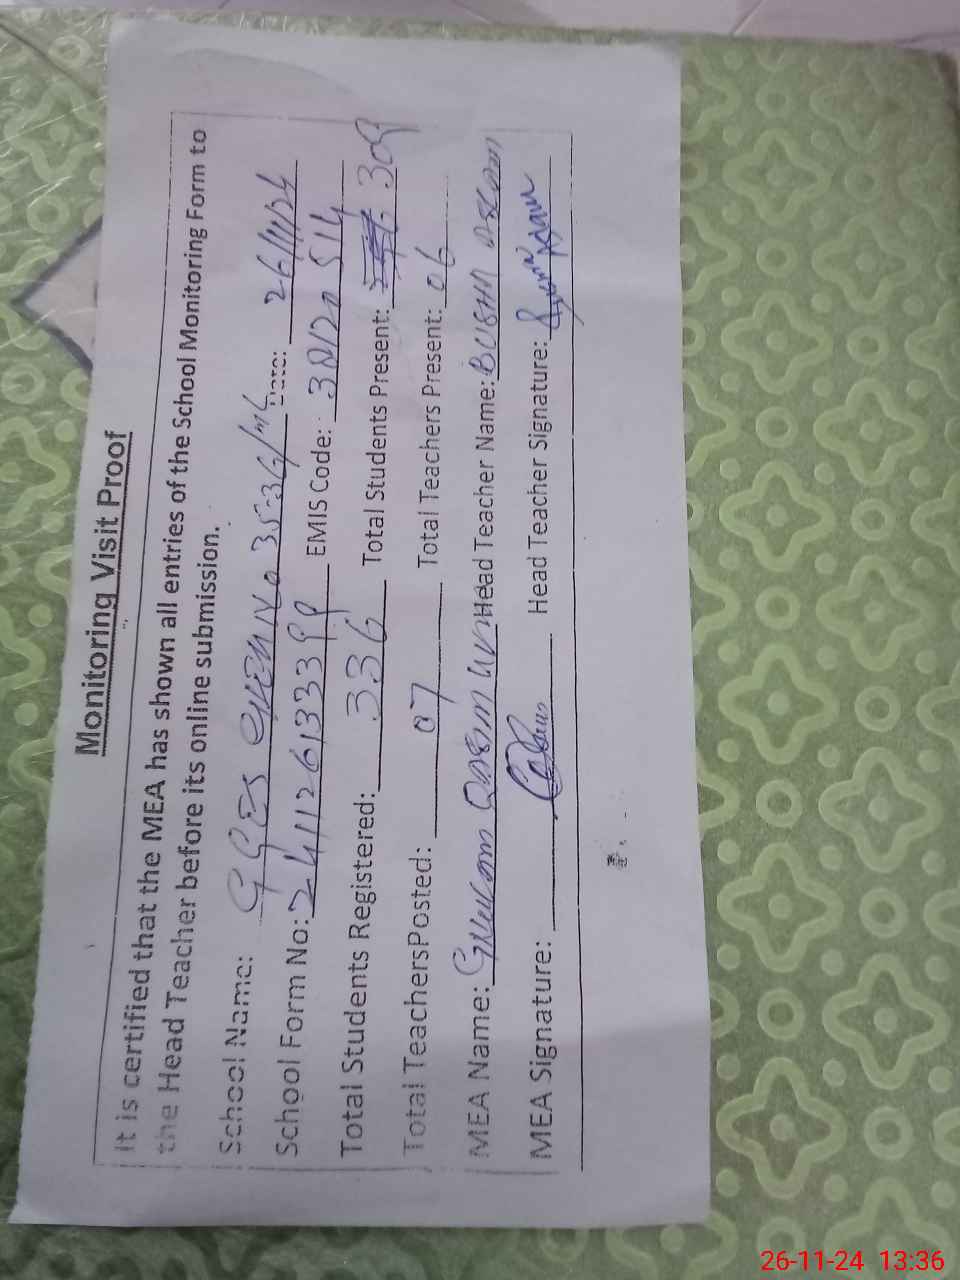 Monitoring Visit Proof
It is certified that the MEA has shown all entries of the School Monitoring Form to
the Head Teacher before its online submission.
School Name: GGES 35-36/ML Date: 26/11/24
School Form No: 241126133399 EMIS Code: 38120514
Total Students Registered: 336 Total Students Present: 309
Total TeachersPosted: 07 Total Teachers Present: 06
MEA Name: Ghulam Qasim Head Teacher Name: BUSHRA ASLAM
MEA Signature: Head Teacher Signature:
26-11-24 13:36